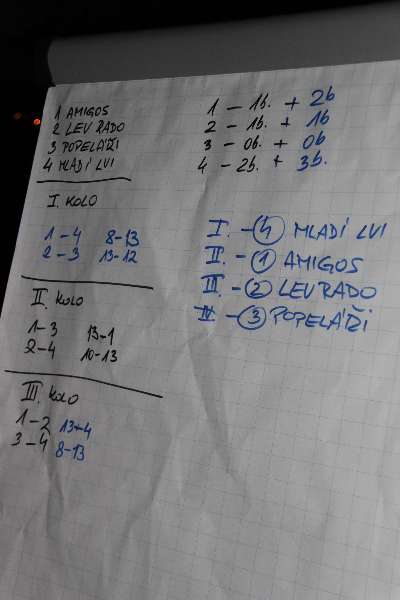 1 AMIGOS
2 LEVRADO
3 POPELÁŘI
4 MLADÍ LVI
I. KOLO
1-4 8-13
2-3 13-12
II. KOLO
1-3 13-1
2-4 10-13
III. KOLO
1-2 13-4
3-4 8-13
1 - 1b. + 2b
2 - 1b. + 1b
3 - 0b. + 0b
4 - 2b. + 3b.
I. - 4 MLADÍ LVI
II. - 1 AMIGOS
III. - 2 LEVRADO
IV - 3 POPELÁŘI